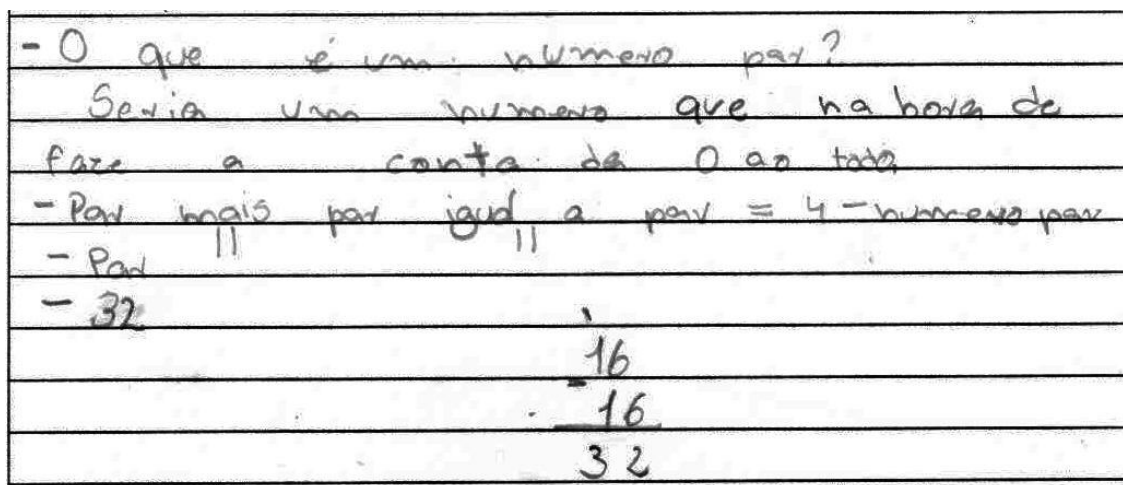 - O que é um numero par?
Seria um numero que na hora de
faze a conta da 0 ao todo
- Par mais par igual a par = 4 - numero par
|| ||
- Par
- 32
16
- 16
32